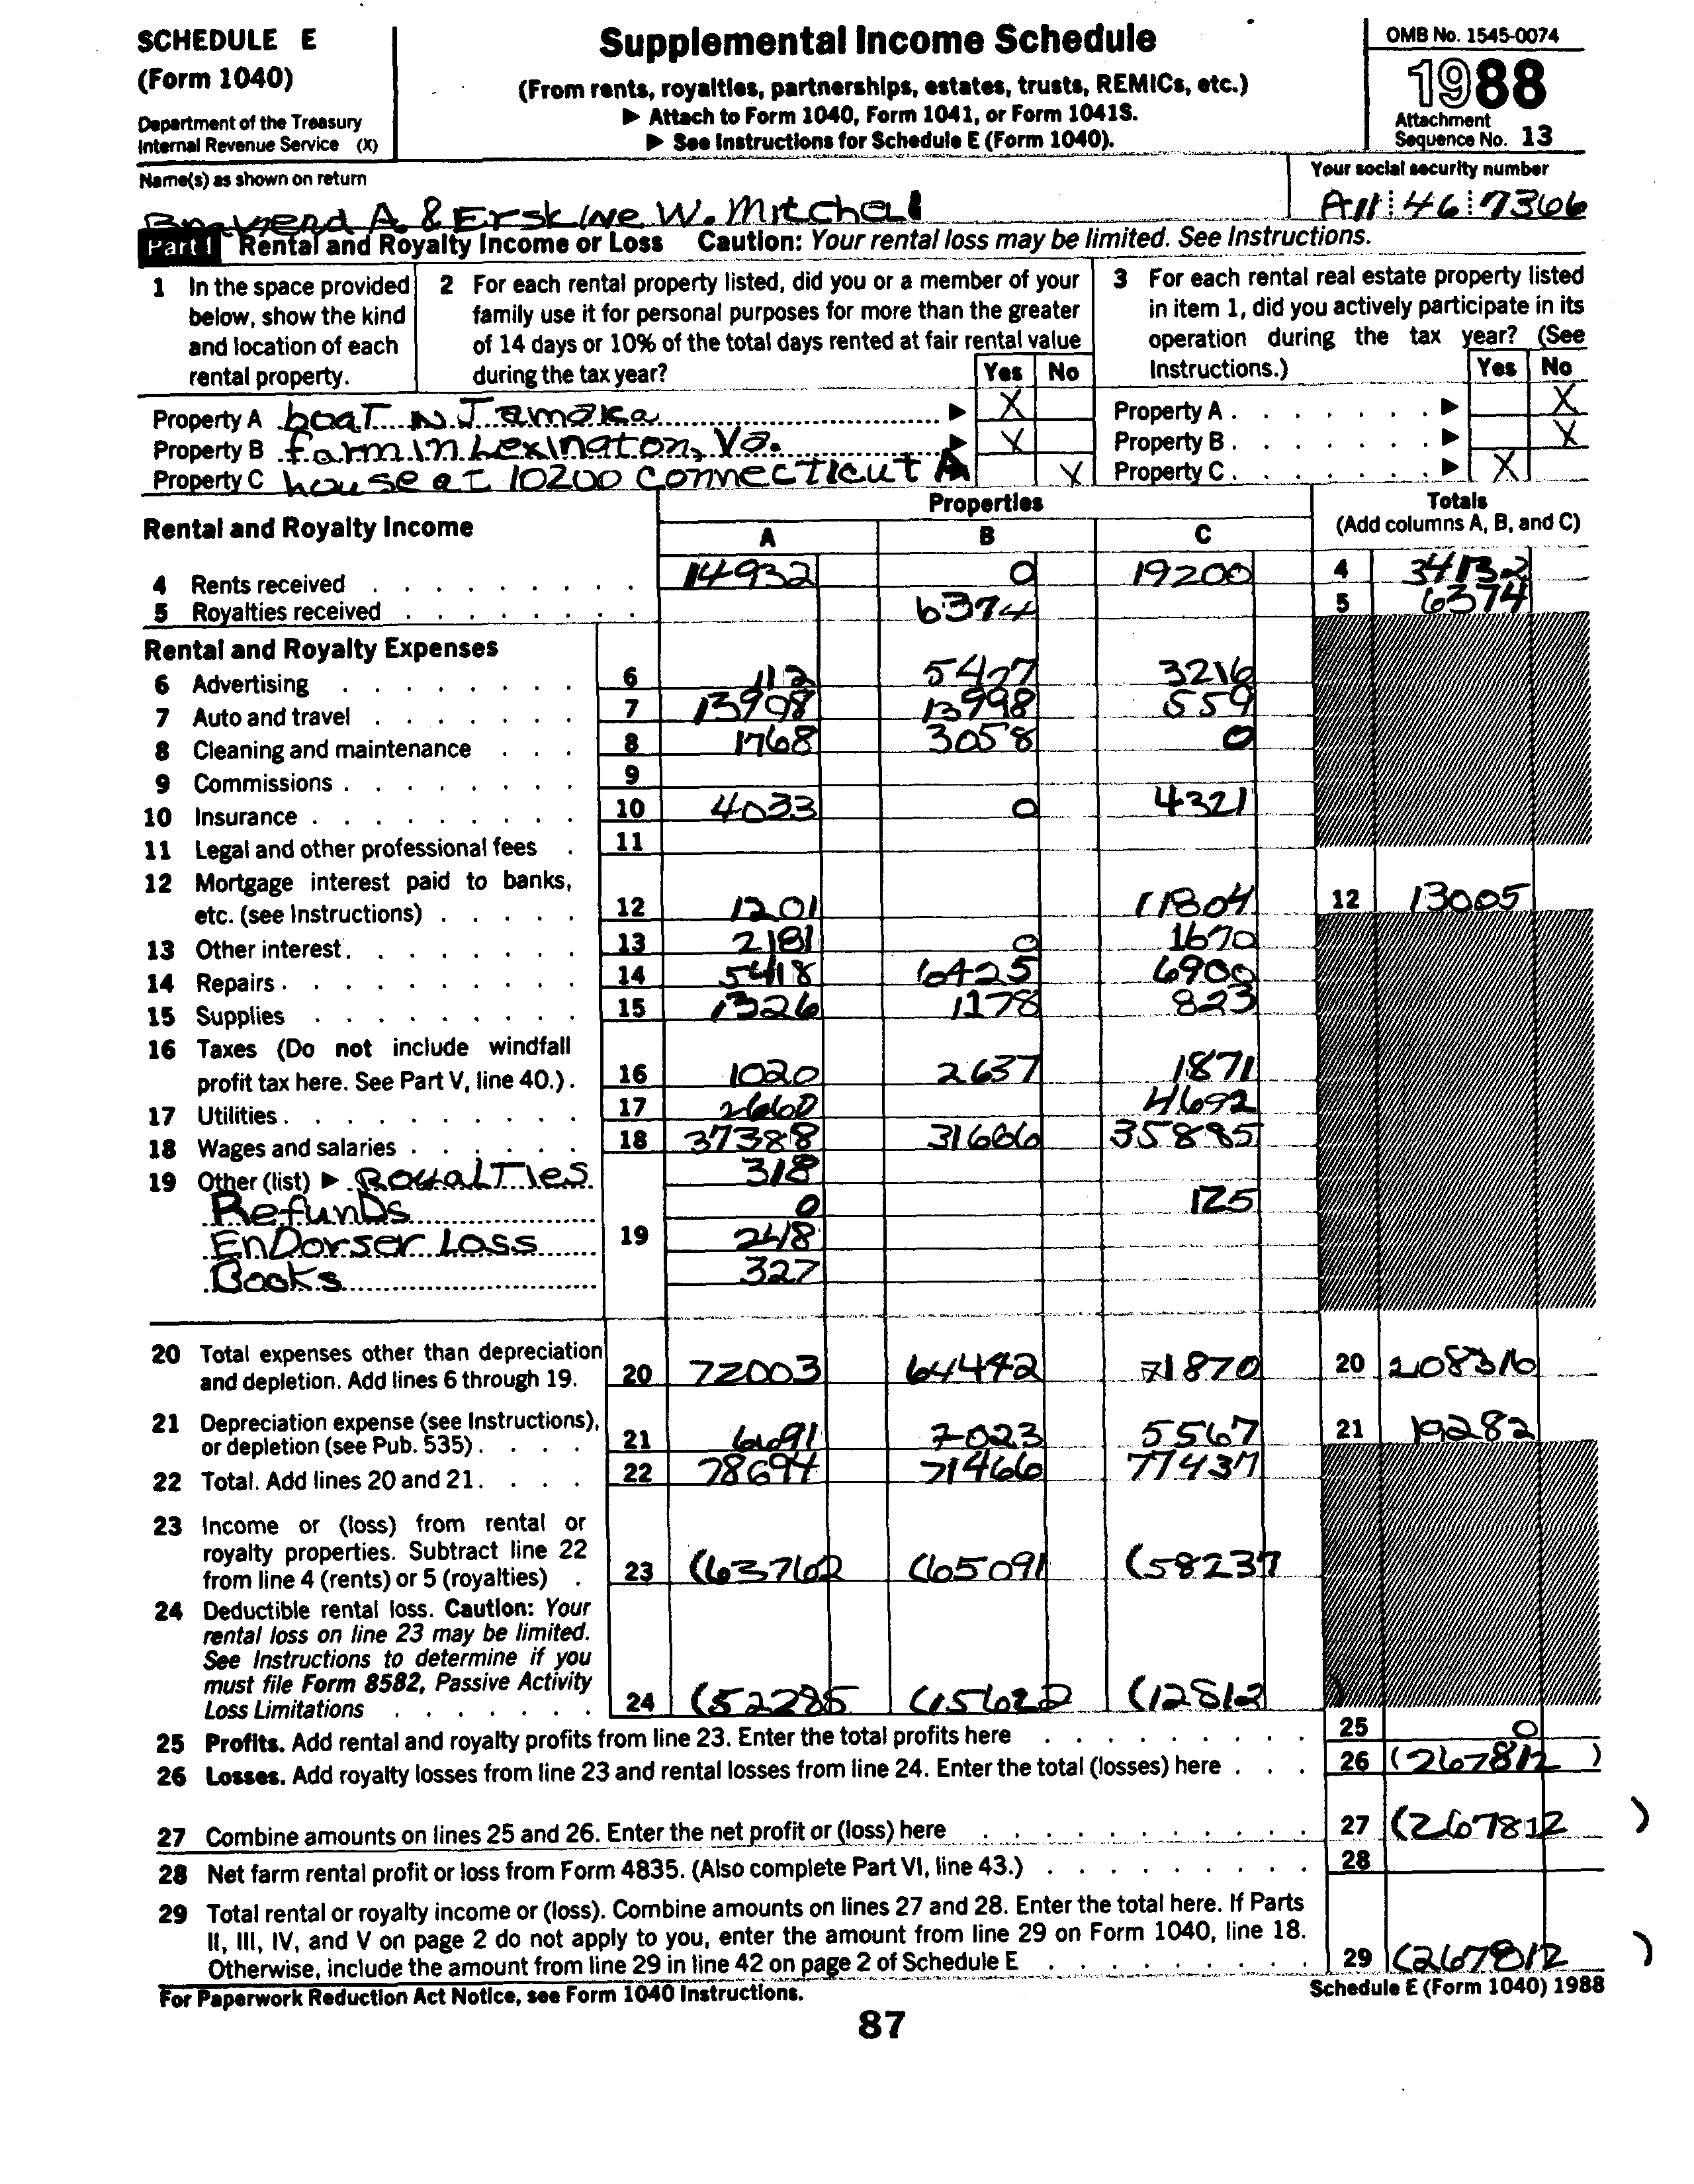 SCHEDULE E
(Form 1040)
Department of the Treasury
Internal Revenue Service (X)
Supplemental Income Schedule
(From rents, royalties, partnerships, estates, trusts, REMICs, etc.)
▶ Attach to Form 1040, Form 1041, or Form 1041S.
▶ See Instructions for Schedule E (Form 1040).
OMB No. 1545-0074
1988
Attachment
Sequence No. 13
Name(s) as shown on return
A. & Erskine W. Mitchal
Your social security number
46 7366
Part I Rental and Royalty Income or Loss Caution: Your rental loss may be limited. See Instructions.
1 In the space provided
below, show the kind
and location of each
rental property.
2 For each rental property listed, did you or a member of your
family use it for personal purposes for more than the greater
of 14 days or 10% of the total days rented at fair rental value
during the tax year? Yes No
3 For each rental real estate property listed
in item 1, did you actively participate in its
operation during the tax year? (See
Instructions.) Yes No
Property A boat N Jamaka ▶ X
Property A ▶ X
Property B farm in Lexington, Va. ▶ X
Property B ▶ X
Property C house at 10200 Connecticut A X
Property C ▶ X
Rental and Royalty Income
Properties
A B C
Totals
(Add columns A, B, and C)
4 Rents received 14932 0 19200 4 34132
5 Royalties received 6374 5 6374
Rental and Royalty Expenses
6 Advertising 6 112 5427 3216
7 Auto and travel 7 13908 13998 559
8 Cleaning and maintenance 8 1768 3058 0
9 Commissions 9
10 Insurance 10 4033 0 4321
11 Legal and other professional fees 11
12 Mortgage interest paid to banks,
etc. (see Instructions) 12 1201 11804 12 13005
13 Other interest 13 2181 0 1670
14 Repairs 14 5418 6425 6900
15 Supplies 15 1326 1178 823
16 Taxes (Do not include windfall
profit tax here. See Part V, line 40.) 16 1020 2637 1871
17 Utilities 17 2660 4692
18 Wages and salaries 18 37388 31666 35885
19 Other (list) ▶ Royalties 318
Refunds 0 125
Endorser Loss 19 248
Books 327
20 Total expenses other than depreciation
and depletion. Add lines 6 through 19. 20 72003 64442 71870 20 208316
21 Depreciation expense (see Instructions),
or depletion (see Pub. 535) 21 6691 7023 5567 21 19282
22 Total. Add lines 20 and 21 22 78694 71466 77437
23 Income or (loss) from rental or
royalty properties. Subtract line 22
from line 4 (rents) or 5 (royalties) 23 (63762 (65091 (58237
24 Deductible rental loss. Caution: Your
rental loss on line 23 may be limited.
See Instructions to determine if you
must file Form 8582, Passive Activity
Loss Limitations 24 (52285 (15622 (12813 )
25 Profits. Add rental and royalty profits from line 23. Enter the total profits here 25 0
26 Losses. Add royalty losses from line 23 and rental losses from line 24. Enter the total (losses) here 26 (267812 )
27 Combine amounts on lines 25 and 26. Enter the net profit or (loss) here 27 (267812 )
28 Net farm rental profit or loss from Form 4835. (Also complete Part VI, line 43.) 28
29 Total rental or royalty income or (loss). Combine amounts on lines 27 and 28. Enter the total here. If Parts
II, III, IV, and V on page 2 do not apply to you, enter the amount from line 29 on Form 1040, line 18.
Otherwise, include the amount from line 29 in line 42 on page 2 of Schedule E 29 (267812 )
For Paperwork Reduction Act Notice, see Form 1040 Instructions.
Schedule E (Form 1040) 1988
87